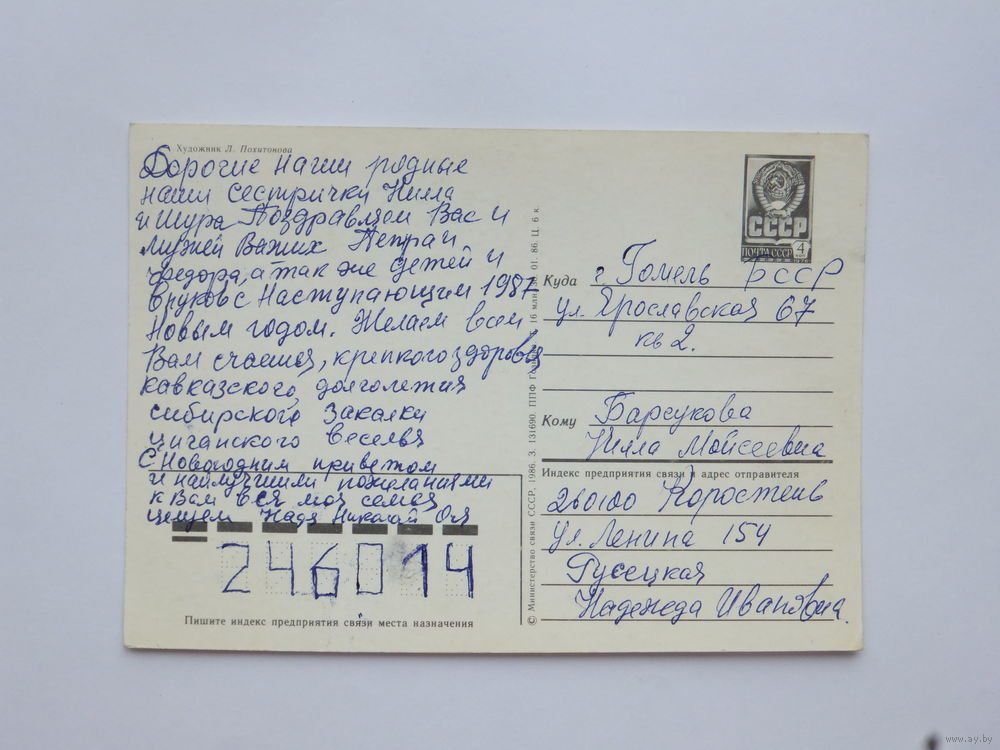 Художник Л. Похитонова
Дорогие наши родные
наши сестрички Нилла
и Шура Поздравляем Вас и
мужей Ваших Петра и
Федора, а так же детей и
внуков с Наступающим 1987
Новым годом. Желаем всем
Вам счастья, крепкого здоровья
кавказского долголетия
сибирского закалки
циганского веселья
С Новогодним приветом
и найлучшими пожеланиями
к Вам вся моя семья
целуем Надя Николай Оля
246014
Пишите индекс предприятия связи места назначения
© Министерство связи СССР, 1986. З. 131690. ППФ 16 млн. 30. 01. 86. Ц. 6 к.
СССР
ПОЧТА СССР 4
Куда г. Гомель БССР
ул. Ярославская 67
кв 2.
Кому Барсукова
Нилла Мойсеевна
Индекс предприятия связи и адрес отправителя
260100 Коростень
ул. Ленина 154
Гусецкая
Надежда Ивановна.
www.ay.by